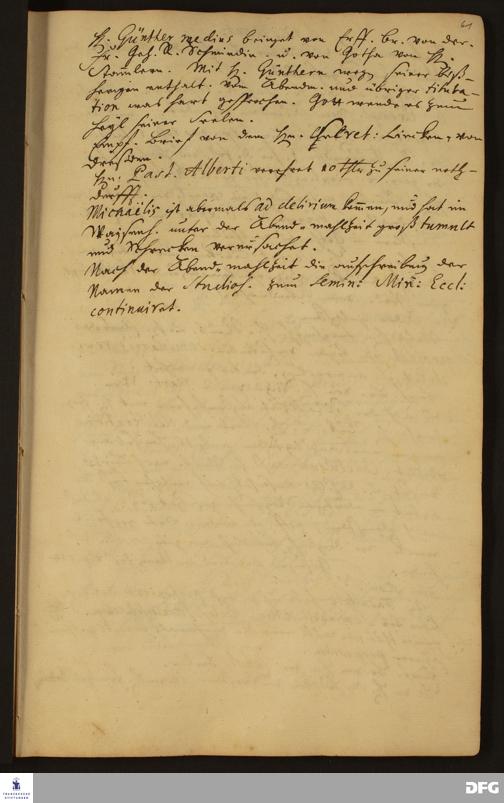 61
H. Günther medius bringet von Erff. br. von der
Fr. Geh. R. Schmidin. u. von Gotha von H.
Mit H. Günthern weg. seiner biß-
herigen enthalt. vom Abendm. und übriger tituba-
tion was hart gesprochen. Gott wende es zum
heyl seiner Seelen.
Empf. brief von dem Hn. Secret: Lincken, von
Dresden.
Hn: Past. Alberti verehret 10 thlr zu seiner noth-
durfft.
Michaelis ist abermals ad delirium kommen, und hat im
Waisenh. unter der Abend-mahlzeit groß tumult
und Schrecken verursachet.
Nach der Abend-mahlzeit die aufschreibung der
Namen der Studios. zum Semin: Min: Eccl:
continuiret.
FRANCKESCHE
STIFTUNGEN
DFG